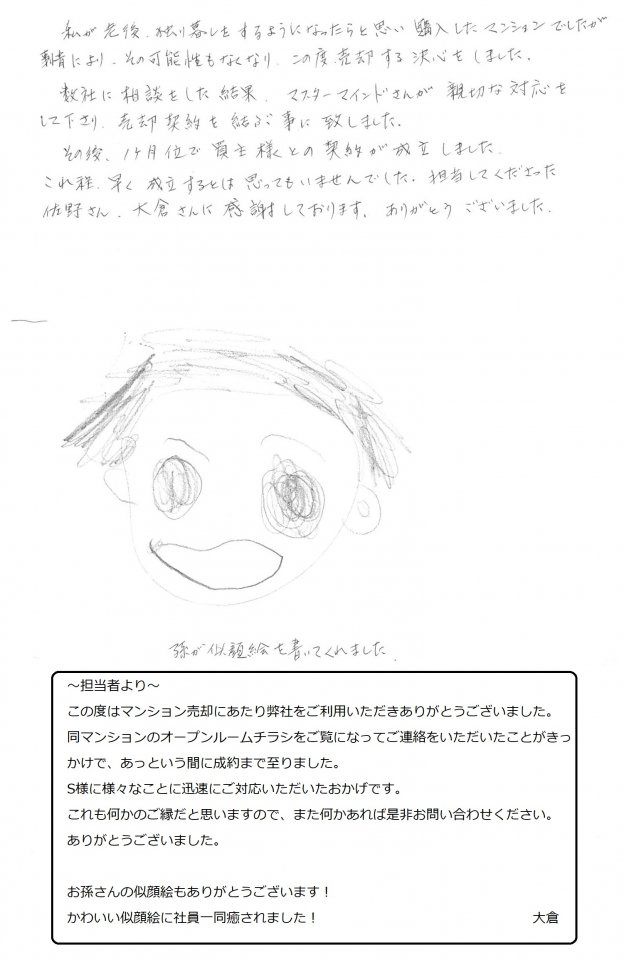 私が老後、独り暮しをするようになったらと思い 購入したマンションでしたが
により、その可能性もなくなり、この度、売却する決心をしました。
数社に相談をした結果、マスターマインドさんが 親切な対応を
して下さり、売却契約を結ぶ事に致しました。
その後、1ヶ月位で買主様との契約が成立しました。
これ程、早く成立するとは思ってもいませんでした。担当してくださった
佐野さん、大倉さんに感謝しております。ありがとうございました。
孫が似顔絵を書いてくれました。
～担当者より～
この度はマンション売却にあたり弊社をご利用いただきありがとうございました。
同マンションのオープンルームチラシをご覧になってご連絡をいただいたことがきっ
かけで、あっという間に成約まで至りました。
S様に様々なことに迅速にご対応いただいたおかげです。
これも何かのご縁だと思いますので、また何かあれば是非お問い合わせください。
ありがとうございました。
お孫さんの似顔絵もありがとうございます！
かわいい似顔絵に社員一同癒されました！ 大倉